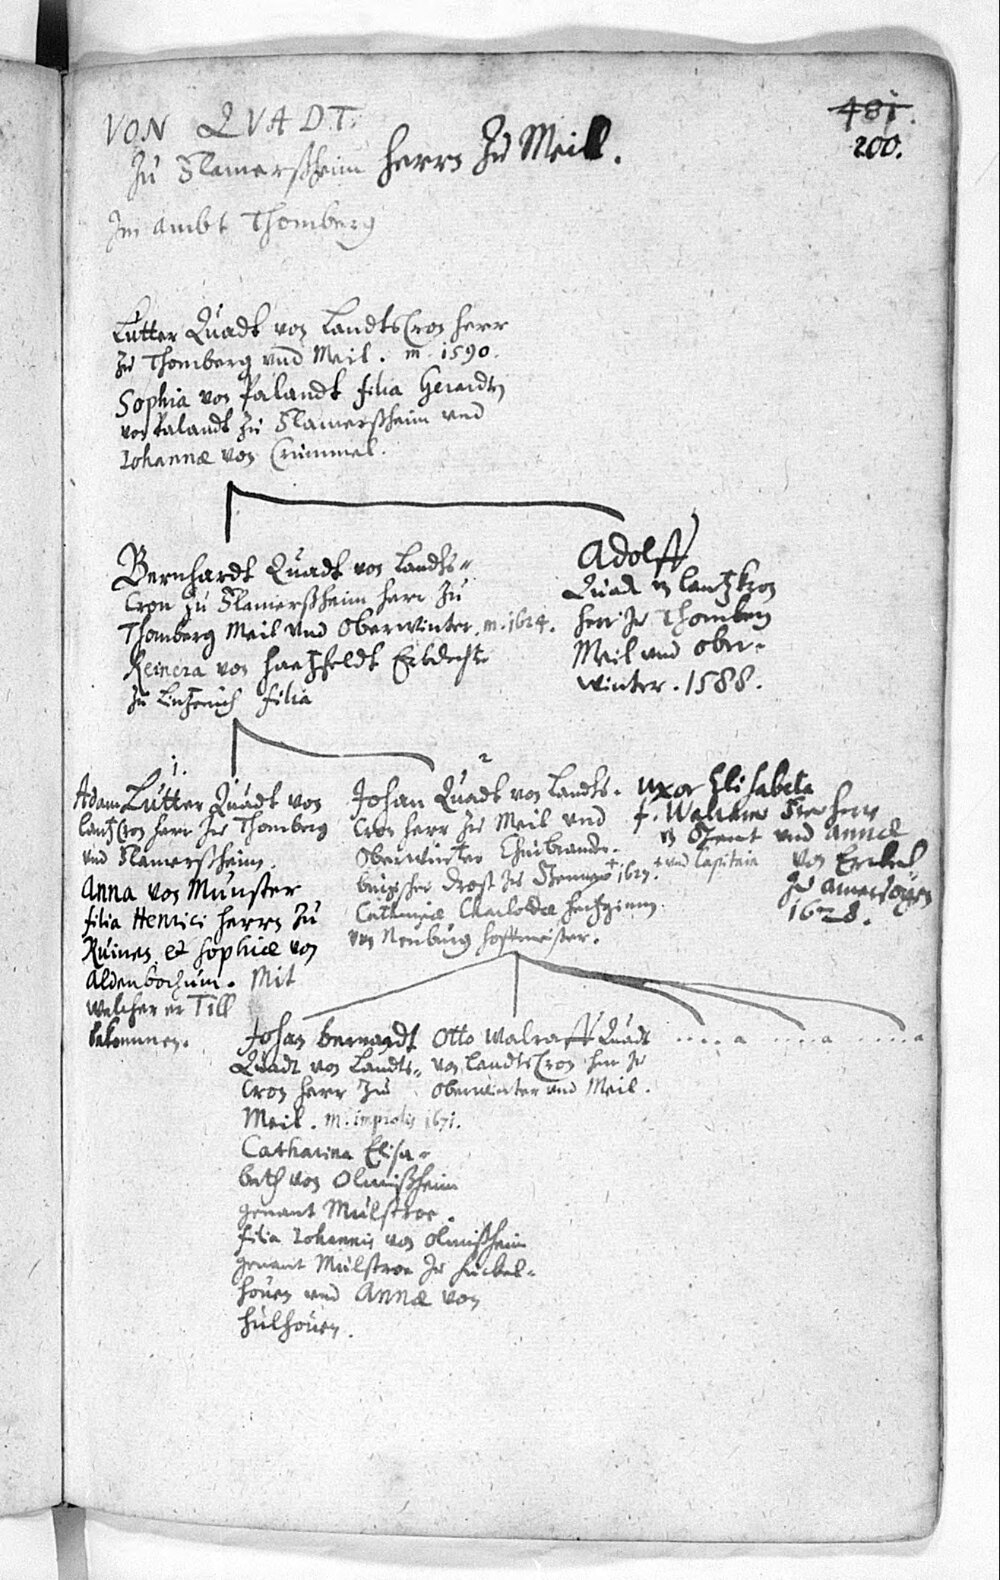 481.
200.
VON QVADT.
Zu Flamerßheim Herrn Zu Meill.
Im Ambt Thomberg
Lutter Quadt von LandtsCron Herr
zu Thomberg vnd Meil. m. 1590.
Sophia von Palandt filia Gerardi
von Palandt zu Flamerßheim vnd
Iohannæ von Crümmel.
Bernhardt Quadt von Landts=
Cron zu Flamerßheim Herr Zu
Thomberg Meil vnd Oberwinter. m. 1624.
Reinera von Haetzfeldt
filia
Adolff
Quad v lantzkron
Herr zu Thomberg
Meil vnd Ober=
winter. 1588.
1.
Adam Lutter Quadt von
lantzCron Herr zu Thomberg
vnd Flamersheim.
Anna von Munster
filia Henrici Herrn Zu
Ruinen et Sophiæ von
Aldenbochum. Mit
welcher er Till
bekommen.
2
Johan Quadt von Landts=
Cron Herr zu Meil vnd
Oberwinter Churbranden=
burgischer Drost zu + 1627. + vnd Capitain
Catharinæ Charlottæ Hertzginn
von Neuburg Hoffmeister.
uxor Elisabeta
f. Walrauen Herr
vnd Annæ
von
zu Amersoyen
1628.
Johan bernardt
Quadt von Landts=
Cron Herr Zu
Meil. m. improlis 1671.
Catharina Elisa=
beth von Olmißheim
genant Mülstroe.
filia Iohannis von Olmißheim
genant Mülstroe zu Hückel=
houen vnd Annæ von
Hülhouen.
Otto Walraff Quadt
von landtsCron Herr zu
Oberwinter vnd Meil.
.... a .... a ..... a